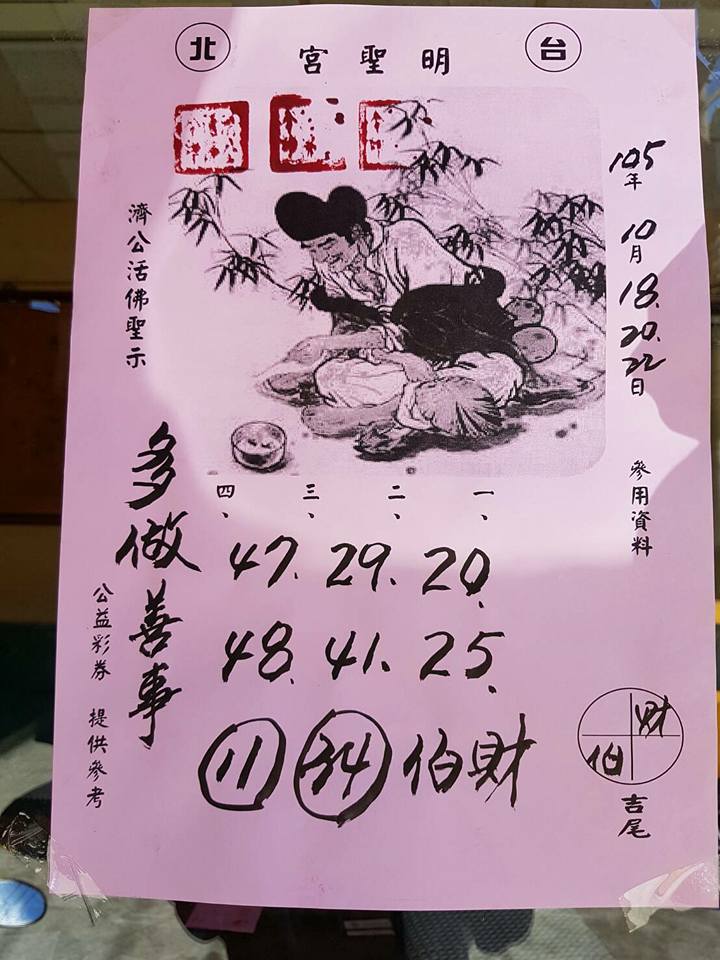 台 北
明聖宮
105年10月18.20.22日
參用資料
濟公活佛聖示
一、 二、 三、 四、
20. 29. 47.
25. 41. 48.
伯財 34 11
多做善事
公益彩券 提供參考
財
伯
吉尾